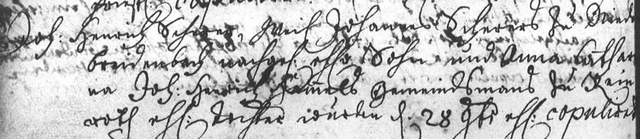 Joh: Henrich Scherer, Weil. Johannes Scherers zu Dau
breidenbach nachgel. ehl. Sohn und Anna Cathar
na Joh: Henrich Hamels Gemeindsmans zu Rein
roth ehl. Tochter wurden d. 28 8br. ehl. copulirt